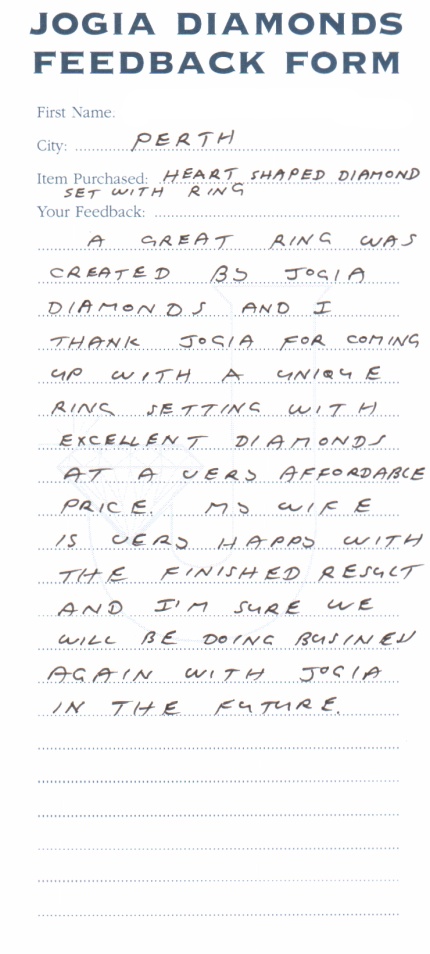 JOGIA DIAMONDS
FEEDBACK FORM
First Name.
City: PERTH
Item Purchased: HEART SHAPED DIAMOND
SET WITH RING
Your Feedback:
A GREAT RING WAS
CREATED BY JOGIA
DIAMONDS AND I
THANK JOGIA FOR COMING
UP WITH A UNIQUE
RING SETTING WITH
EXCELLENT DIAMONDS
AT A VERY AFFORDABLE
PRICE. MY WIFE
IS VERY HAPPY WITH
THE FINISHED RESULT
AND I'M SURE WE
WILL BE DOING BUSINESS
AGAIN WITH JOGIA
IN THE FUTURE.